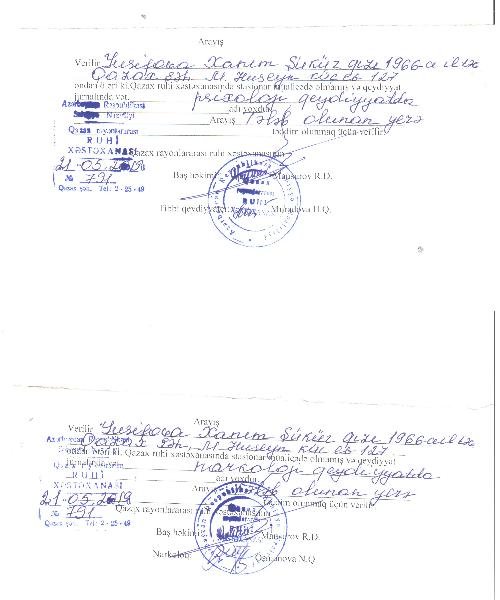 Arayış
Verilir Yusifova Xanım Şükür qızı 1966-cı ildə
Qazax şəh, M. Huseyn küç ev 127
ondan ötəri ki. Qazax ruhi xəstəxanasında stasionar müalicədə olmamış və qeydiyyat
jurnalında
psixoloji qeydiyyatda
adı yoxdur
Azərbaycan Respublikası
Nazirliyi
Arayış tələb olunan yerə
təqdim olunmaq üçün verilir
Qazax rayonlararası
RUHİ
XƏSTƏXANASI
Qazax rayonlararası ruhi xəstəxanasının
21.05.2019
№ 791
Qazax şəh. Tel: 2-25-49
Baş həkimi Mansurov R.D.
Tibbi qeydiyyatçı Muradova H.Q.
Arayış
Verilir Yusifova Xanım Şükür qızı 1966-cı ildə
Qazax şəh, M. Huseyn küç ev 127
Azərbaycan Respublikası
ondan ötəri ki. Qazax ruhi xəstəxanasında stasionar müalicədə olmamış və qeydiyyat
narkoloji qeydiyyatda
adı yoxdur
RUHİ
XƏSTƏXANASI
tələb olunan yerə
təqdim olunmaq üçün verilir
21.05.2019
Qazax rayonlararası ruhi xəstəxanasının
№ 791
Qazax şəh. Tel: 2-25-49
Baş həkimi Mansurov R.D.
Narkoloq Osmanova N.Q